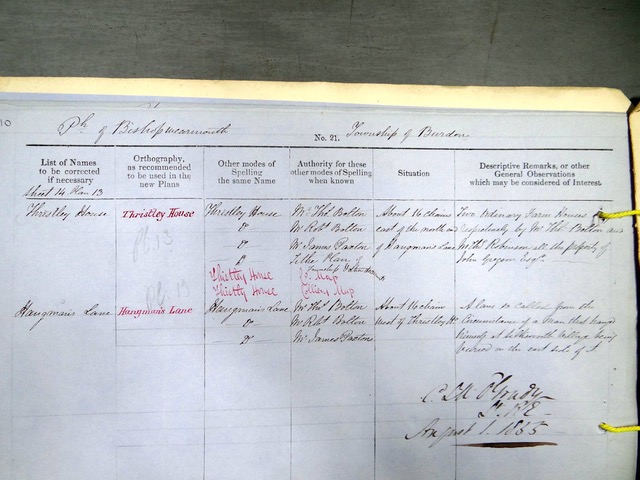 10
Ph of Bishopwearmouth No. 21. Township of Burdon
List of Names to be corrected if necessary
Orthography, as recommended to be used in the new Plans
Other modes of Spelling the same Name
Authority for these other modes of Spelling when known
Situation
Descriptive Remarks, or other General Observations which may be considered of Interest.
Sheet 14 Plan 13
Thristley House Thristley House Thristley House Mr. Thos. Bolton About 16 chains Two Ordinary Farm Houses
Do Mr Robt. Bolton east of the mouth respectively by Mr Thos Bolton and
Do Mr James Paxton of Hangmans Lane Mr Thos Robinson all the property of
Do Tithe Plan of John Gregson Esqr.
Township of Burdon
Thistley House Co. Map
Thistley House
Pl. 13
Hangman's Lane Hangman's Lane Hangman's Lane Mr Thos. Bolton About 16 chains A lane so called from the
Do Mr Robt Bolton west of Thristley Ho. Circumstance of a man that hanged
Do Mr James Paxton himself at Silksworth Village being
buried on the east side of it
C. O'Grady
Lt. R.E.
August 1. 1855